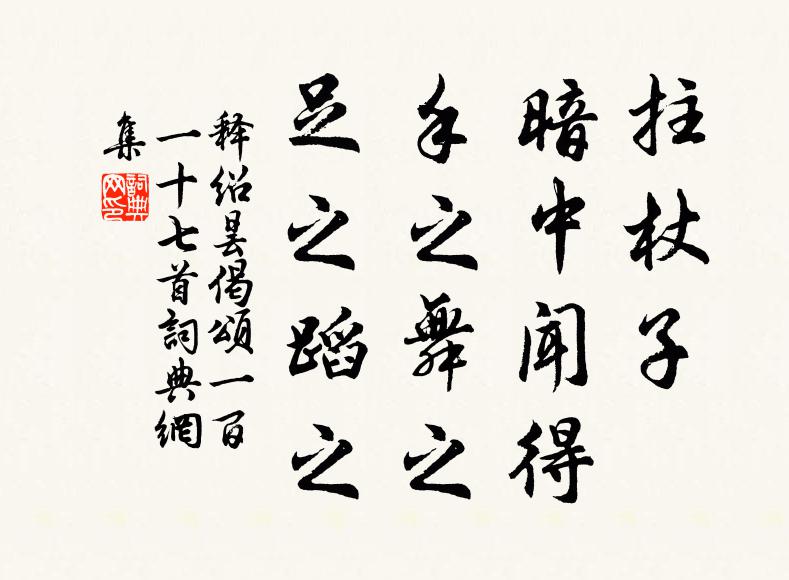 拄杖子
暗中闻得
手之舞之
足之蹈之
释绍昙偈頌一百
一十七首詞典網
集
詞典
网印